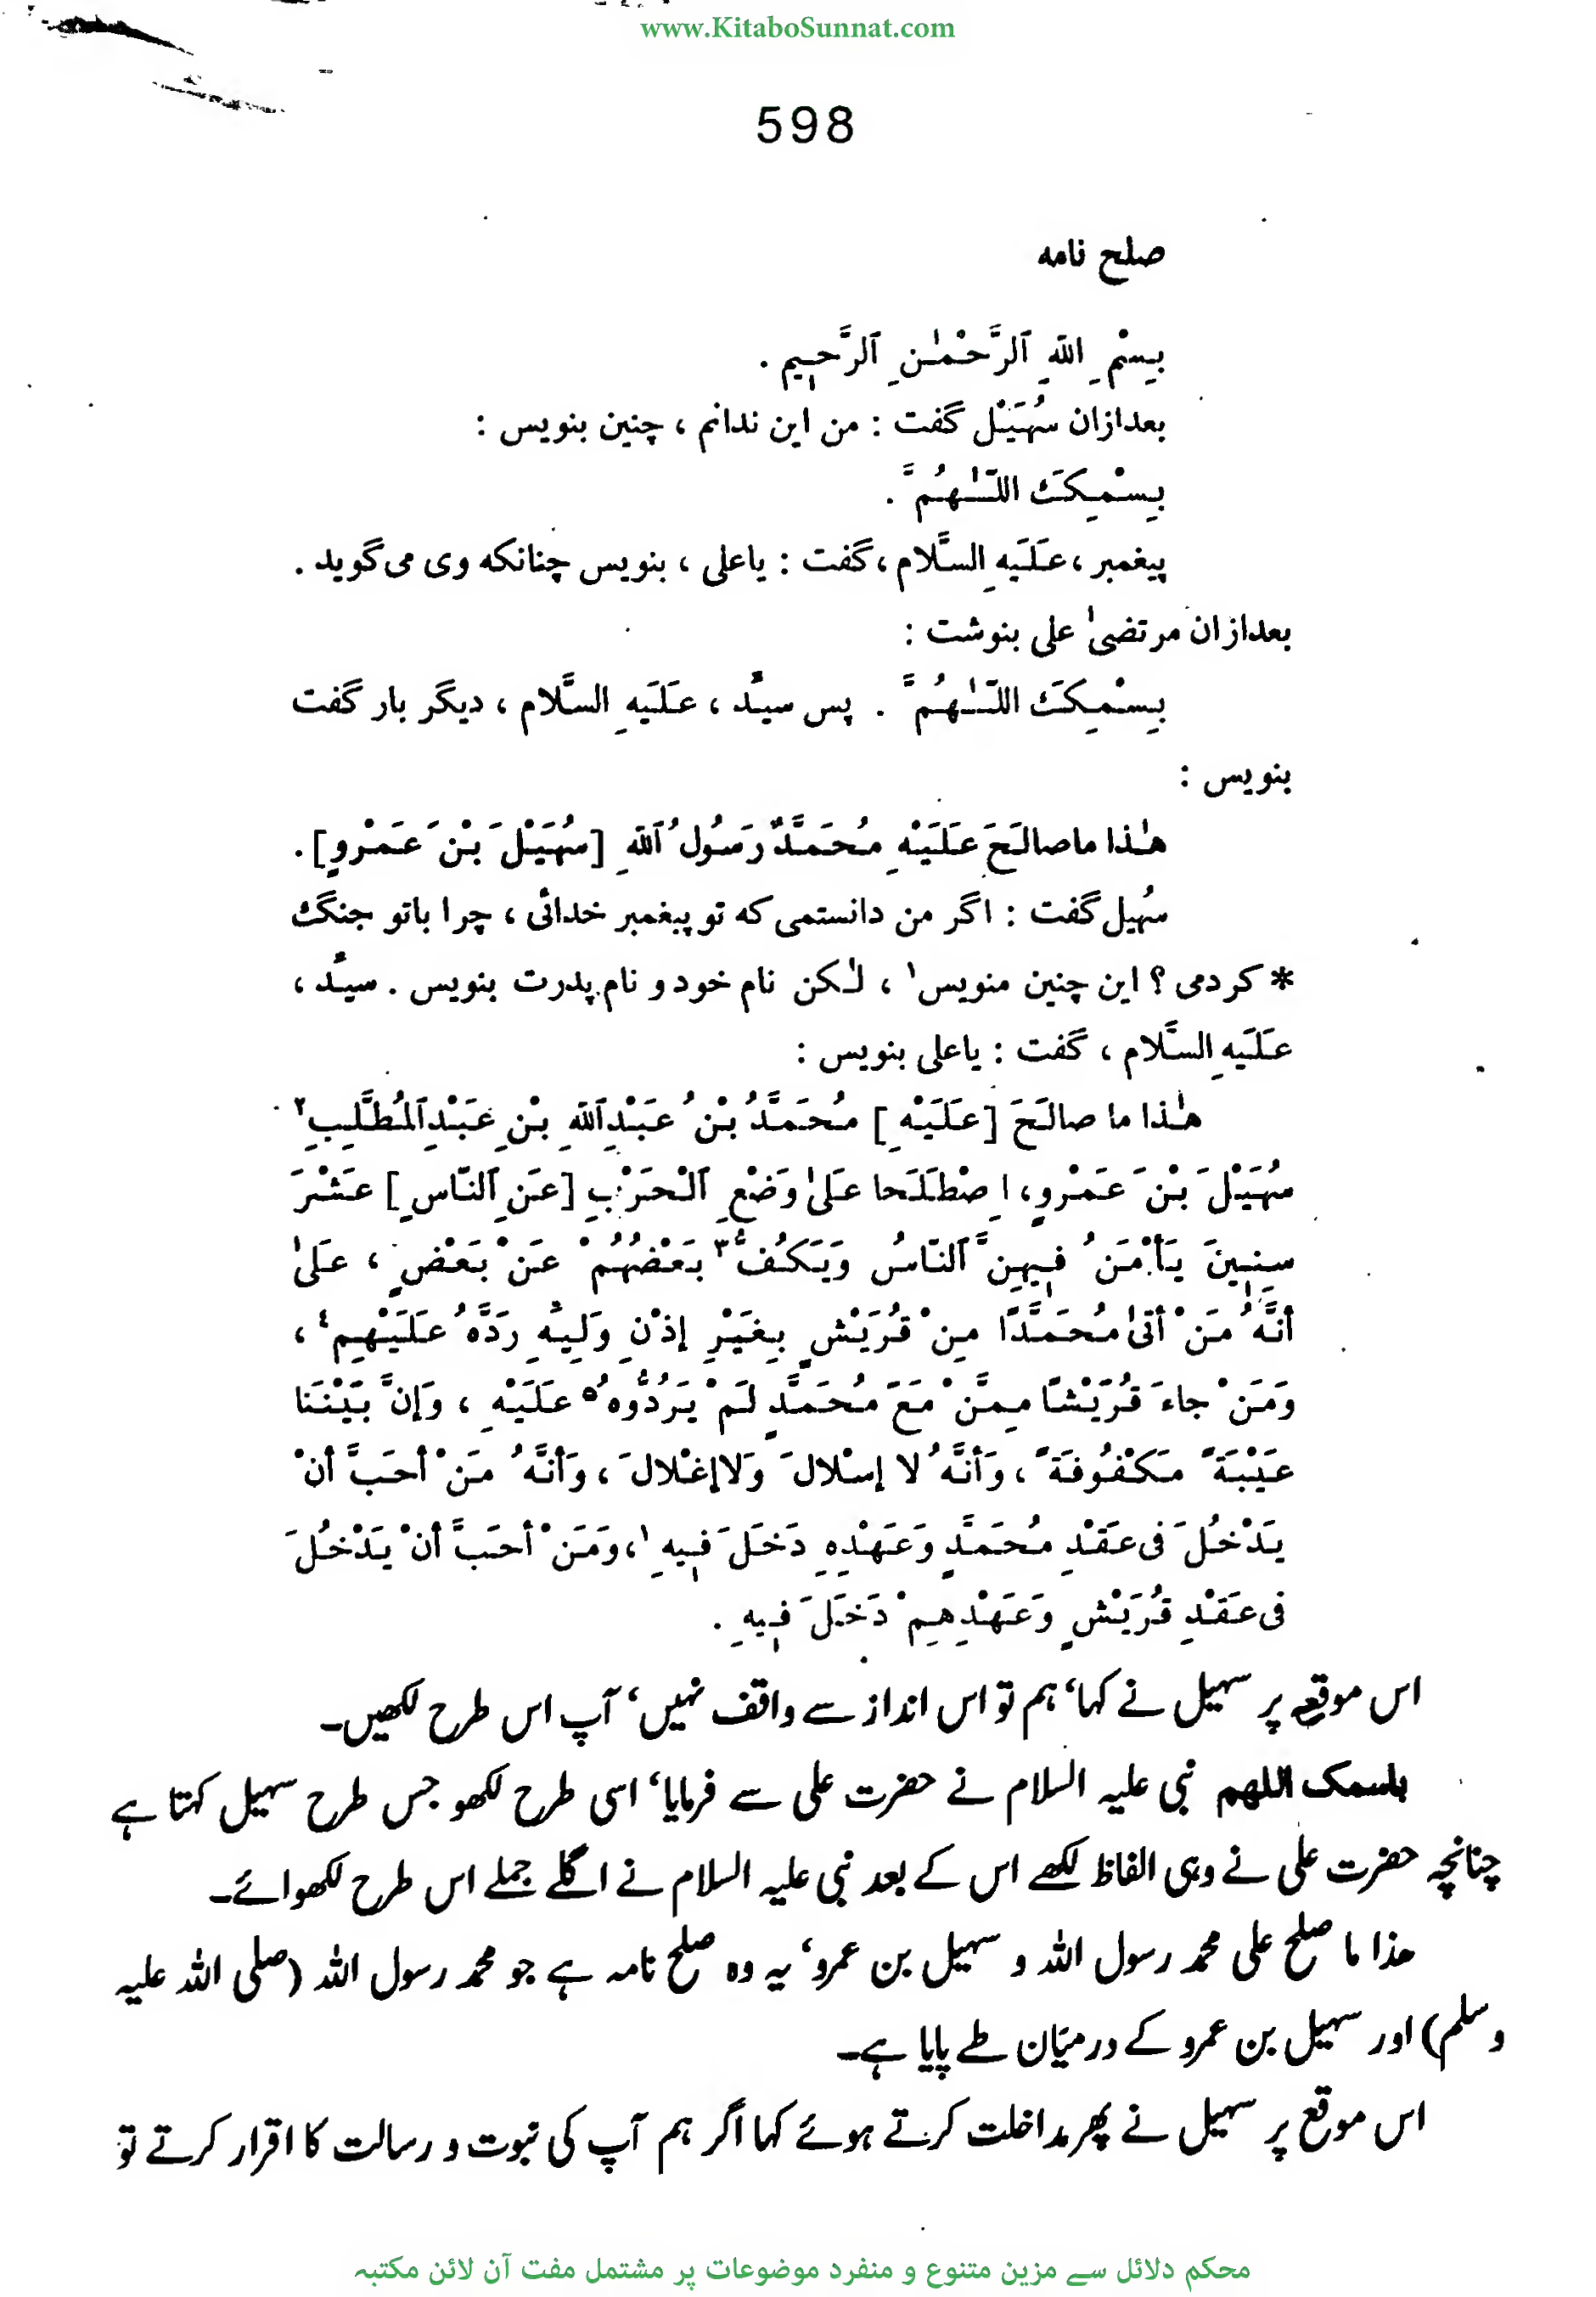 www.KitaboSunnat.com
598
صلح نامه
بِسْمِ اللهِ ٱلرَّحْمٰنِ ٱلرَّحيمِ .
بعدازان سُهَيْل گفت : من این ندانم ، چنین بنویس :
بِسْمِكَ اللّٰهُمَّ .
پیغمبر ، عَلَيهِ السَّلام ، گفت : یاعلی ، بنویس چنانکه وی می‌گوید .
بعدازان مرتضیٰ علی بنوشت :
بِسْمِكَ اللّٰهُمَّ . پس سیّد ، عَلَيهِ السَّلام ، دیگر بار گفت
بنویس :
هٰذا ماصالَحَ عَلَيْهِ مُحَمَّدٌ رَسُولُ ٱللهِ [سُهَيْلَ بْنَ عَمْروٍ] .
سُهیل گفت : اگر من دانستمی که تو پیغمبر خدائی ، چرا باتو جنگ
* کردمی ؟ این چنین منویس۱ ، لٰکن نام خود و نام پدرت بنویس . سیّد ،
عَلَيهِ السَّلام ، گفت : یاعلی بنویس :
هٰذا ما صالَحَ [عَلَيْهِ] مُحَمَّدُ بْنُ عَبْدِٱللهِ بْنِ عَبْدِٱلمُطَّلِبِ۲
سُهَيْلَ بْنَ عَمْروٍ، اِصْطَلَحا عَلىٰ وَضْعِ ٱلْحَرْبِ [عَنِ ٱلنّاسِ] عَشْرَ
سِنِينَ يَأْمَنُ فيهِنَّ ٱلنّاسُ وَيَكُفُّ۳ بَعْضُهُمْ عَنْ بَعْضٍ ، عَلىٰ
أنَّهُ مَنْ أتىٰ مُحَمَّدًا مِنْ قُرَيْشٍ بِغَيْرِ إذْنِ وَلِيِّهِ رَدَّهُ عَلَيْهِم۴ ،
وَمَنْ جاءَ قُرَيْشًا مِمَّنْ مَعَ مُحَمَّدٍ لَمْ يَرُدُّوهُ۵ عَلَيْهِ ، وَإنَّ بَيْنَنَا
عَيْبَةً مَكْفُوفَةً ، وَأنَّهُ لا إسْلالَ وَلاإغْلالَ ، وَأنَّهُ مَنْ أحَبَّ أنْ
يَدْخُلَ فى عَقْدِ مُحَمَّدٍ وَعَهْدِهِ دَخَلَ فيهِ۱ ، وَمَنْ أحَبَّ أنْ يَدْخُلَ
فى عَقْدِ قُرَيْشٍ وَعَهْدِهِمْ دَخَلَ فيهِ .
اس موقعے پر سہیل نے کہا‘ ہم تو اس انداز سے واقف نہیں‘ آپ اس طرح لکھیں۔
باسمک اللھم نبی علیہ السلام نے حضرت علی سے فرمایا‘ اسی طرح لکھو جس طرح سہیل کہتا ہے
چنانچہ حضرت علی نے وہی الفاظ لکھے اس کے بعد نبی علیہ السلام نے اگلے جملے اس طرح لکھوائے۔
ھذا ما صلح علی محمد رسول اللہ و سہیل بن عمرو‘ یہ وہ صلح نامہ ہے جو محمد رسول اللہ (صلی اللہ علیہ
وسلم) اور سہیل بن عمرو کے درمیان طے پایا ہے۔
اس موقع پر سہیل نے پھر مداخلت کرتے ہوئے کہا اگر ہم آپ کی نبوت و رسالت کا اقرار کرتے تو
محکم دلائل سے مزین متنوع و منفرد موضوعات پر مشتمل مفت آن لائن مکتبہ